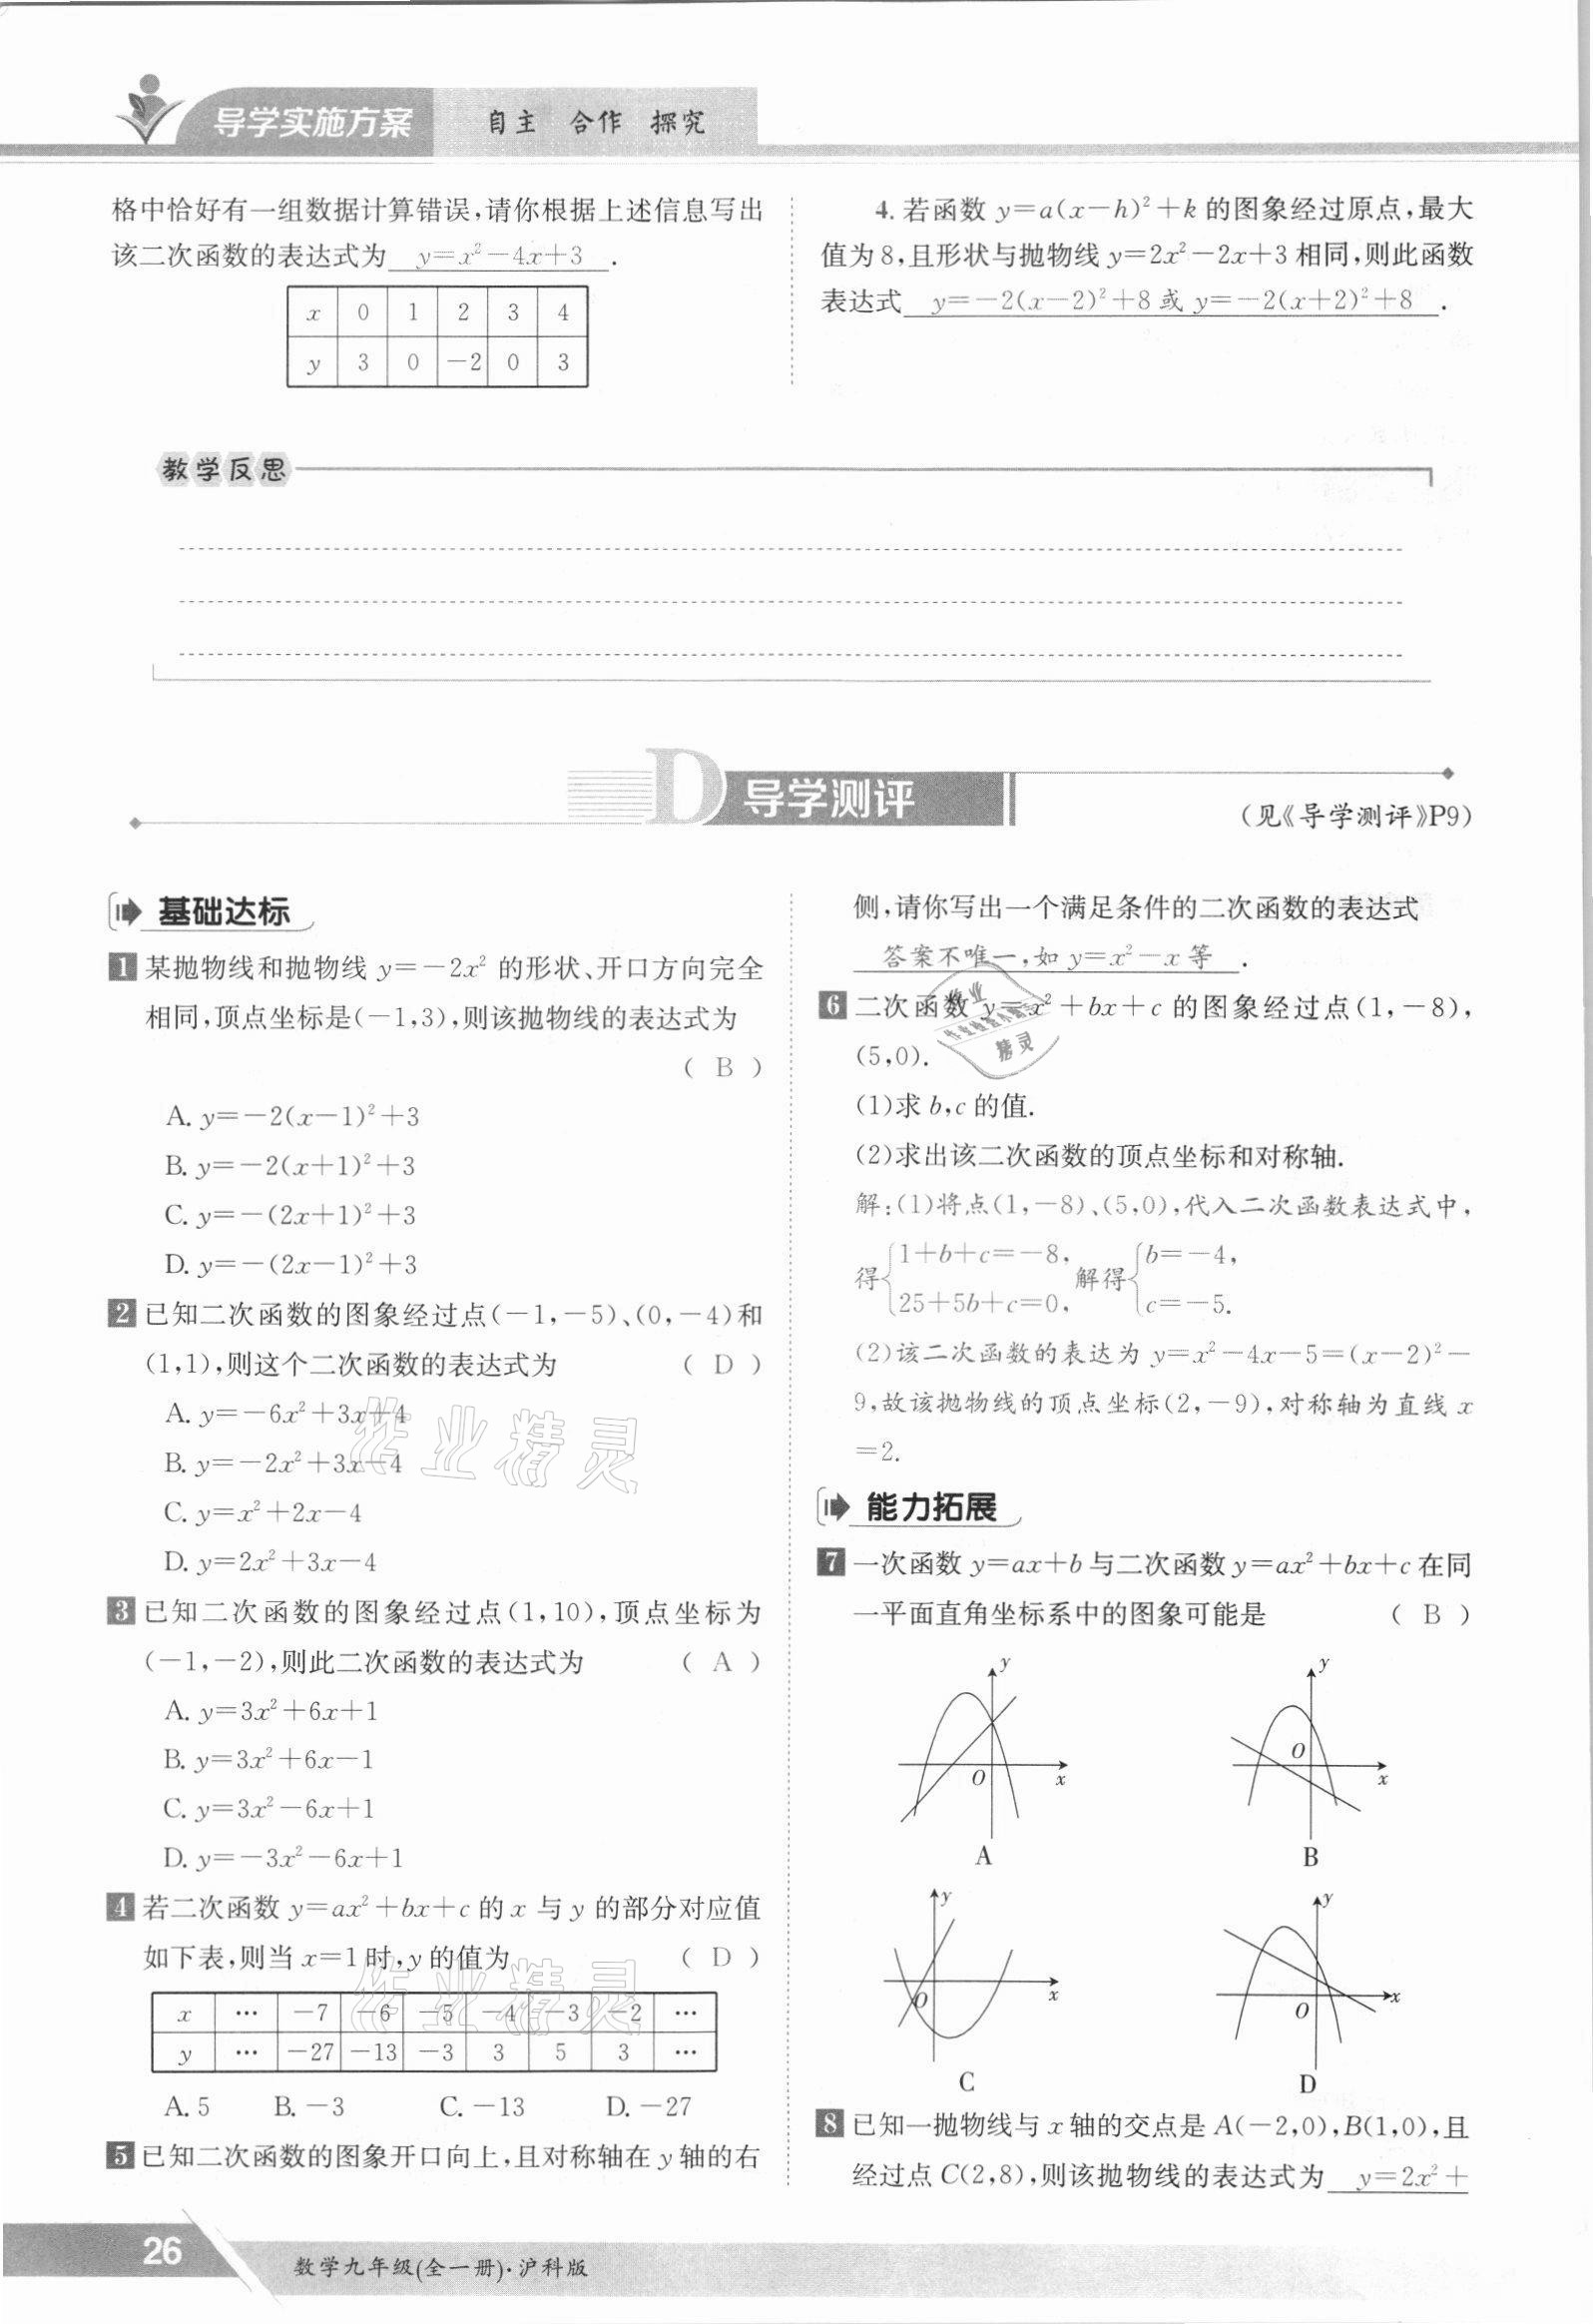 导学实施方案 自主 合作 探究
格中恰好有一组数据计算错误,请你根据上述信息写出
该二次函数的表达式为 y=x²-4x+3 .
x 0 1 2 3 4
y 3 0 -2 0 3
4. 若函数 y=a(x-h)²+k 的图象经过原点,最大
值为8,且形状与抛物线 y=2x²-2x+3 相同,则此函数
表达式 y=-2(x-2)²+8 或 y=-2(x+2)²+8 .
教学反思
D 导学测评
(见《导学测评》P9)
基础达标
1 某抛物线和抛物线 y=-2x² 的形状、开口方向完全
相同,顶点坐标是(-1,3),则该抛物线的表达式为
( B )
A. y=-2(x-1)²+3
B. y=-2(x+1)²+3
C. y=-(2x+1)²+3
D. y=-(2x-1)²+3
2 已知二次函数的图象经过点(-1,-5)、(0,-4)和
(1,1),则这个二次函数的表达式为 ( D )
A. y=-6x²+3x+4
B. y=-2x²+3x-4
C. y=x²+2x-4
D. y=2x²+3x-4
3 已知二次函数的图象经过点(1,10),顶点坐标为
(-1,-2),则此二次函数的表达式为 ( A )
A. y=3x²+6x+1
B. y=3x²+6x-1
C. y=3x²-6x+1
D. y=-3x²-6x+1
4 若二次函数 y=ax²+bx+c 的 x 与 y 的部分对应值
如下表,则当 x=1 时,y 的值为 ( D )
x … -7 -6 -5 -4 -3 -2 …
y … -27 -13 -3 3 5 3 …
A. 5 B. -3 C. -13 D. -27
5 已知二次函数的图象开口向上,且对称轴在 y 轴的右
侧,请你写出一个满足条件的二次函数的表达式
答案不唯一,如 y=x²-x 等 .
6 二次函数 y=x²+bx+c 的图象经过点(1,-8),
(5,0).
(1)求 b,c 的值.
(2)求出该二次函数的顶点坐标和对称轴.
解:(1)将点(1,-8)、(5,0),代入二次函数表达式中,
得{1+b+c=-8, 解得{b=-4,
25+5b+c=0, c=-5.
(2)该二次函数的表达为 y=x²-4x-5=(x-2)²-
9,故该抛物线的顶点坐标(2,-9),对称轴为直线 x
=2.
能力拓展
7 一次函数 y=ax+b 与二次函数 y=ax²+bx+c 在同
一平面直角坐标系中的图象可能是 ( B )
y O x y O x
A B
y O x y O x
C D
8 已知一抛物线与 x 轴的交点是 A(-2,0),B(1,0),且
经过点 C(2,8),则该抛物线的表达式为 y=2x²+
作业精灵
作业精灵
26 数学九年级(全一册)·沪科版